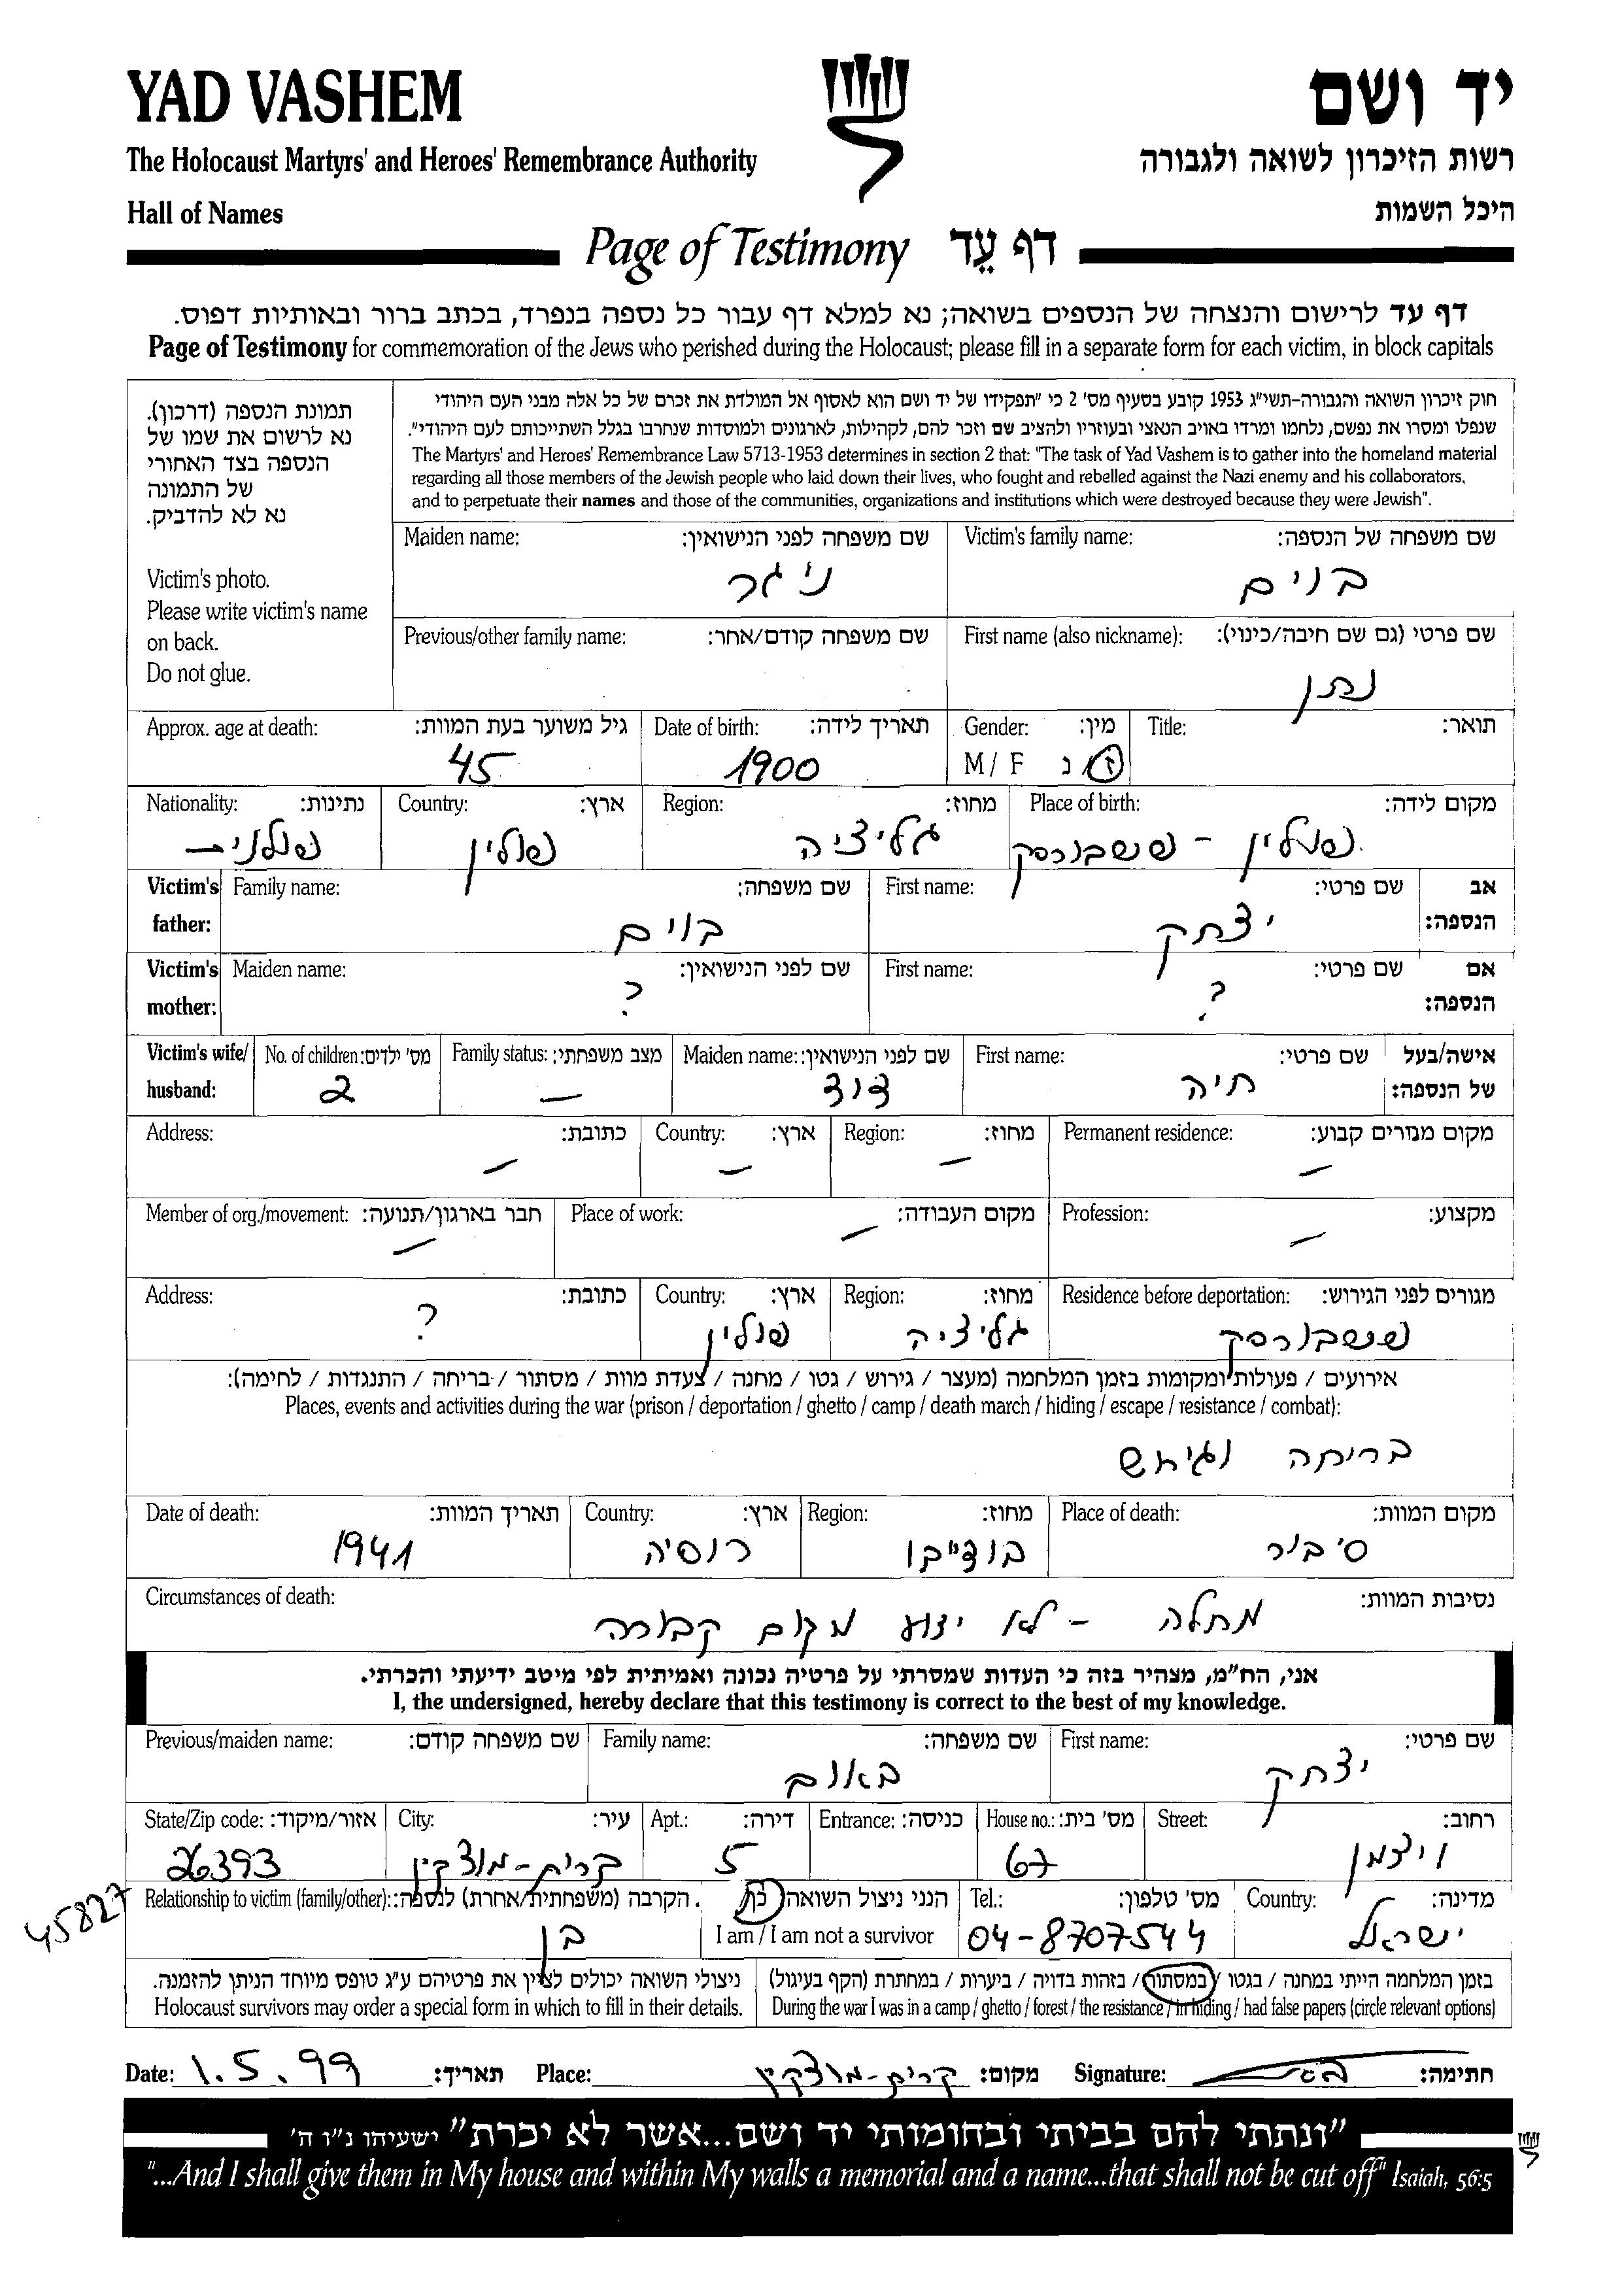 YAD VASHEM
יד ושם
The Holocaust Martyrs' and Heroes' Remembrance Authority
רשות הזיכרון לשואה ולגבורה
Hall of Names
היכל השמות
Page of Testimony דף עֵד
דף עד לרישום והנצחה של הנספים בשואה; נא למלא דף עבור כל נספה בנפרד, בכתב ברור ובאותיות דפוס.
Page of Testimony for commemoration of the Jews who perished during the Holocaust; please fill in a separate form for each victim, in block capitals
חוק זיכרון השואה והגבורה-תשי"ג 1953 קובע בסעיף מס' 2 כי "תפקידו של יד ושם הוא לאסוף אל המולדת את זכרם של כל אלה מבני העם היהודי
שנפלו ומסרו את נפשם, נלחמו ומרדו באויב הנאצי ובעוזריו ולהציב שם וזכר להם, לקהילות, לארגונים ולמוסדות שנחרבו בגלל השתייכותם לעם היהודי".
The Martyrs' and Heroes' Remembrance Law 5713-1953 determines in section 2 that: "The task of Yad Vashem is to gather into the homeland material
regarding all those members of the Jewish people who laid down their lives, who fought and rebelled against the Nazi enemy and his collaborators,
and to perpetuate their names and those of the communities, organizations and institutions which were destroyed because they were Jewish".
תמונת הנספה (דרכון).
נא לרשום את שמו של
הנספה בצד האחורי
של התמונה
נא לא להדביק.
Victim's photo.
Please write victim's name
on back.
Do not glue.
Victim's family name: שם משפחה של הנספה:
בוים
Maiden name: שם משפחה לפני הנישואין:
ניגר
First name (also nickname): שם פרטי (גם שם חיבה/כינוי):
נתן
Previous/other family name: שם משפחה קודם/אחר:
Title: תואר:
Gender: מין:
M / F ז נ
Date of birth: תאריך לידה:
1900
Approx. age at death: גיל משוער בעת המוות:
45
Place of birth: מקום לידה:
פולין - פשבורסק
Region: מחוז:
גליציה
Country: ארץ:
פולין
Nationality: נתינות:
פולנית
Victim's father: אב הנספה:
First name: שם פרטי:
יצחק
Family name: שם משפחה:
בוים
Victim's mother: אם הנספה:
First name: שם פרטי:
?
Maiden name: שם לפני הנישואין:
?
Victim's wife/ husband: אישה/בעל של הנספה:
First name: שם פרטי:
חיה
Maiden name: שם לפני הנישואין:
דוד
Family status: מצב משפחתי:
—
No. of children: מס' ילדים:
2
Permanent residence: מקום מגורים קבוע:
—
Region: מחוז:
—
Country: ארץ:
—
Address: כתובת:
—
Profession: מקצוע:
—
Place of work: מקום העבודה:
—
Member of org./movement: חבר בארגון/תנועה:
—
Residence before deportation: מגורים לפני הגירוש:
פשבורסק
Region: מחוז:
גליציה
Country: ארץ:
פולין
Address: כתובת:
?
אירועים / פעולות ומקומות בזמן המלחמה (מעצר / גירוש / גטו / מחנה / צעדת מוות / מסתור / בריחה / התנגדות / לחימה):
Places, events and activities during the war (prison / deportation / ghetto / camp / death march / hiding / escape / resistance / combat):
בריחה וגירוש
Place of death: מקום המוות:
סיביר
Region: מחוז:
בודייבו
Country: ארץ:
רוסיה
Date of death: תאריך המוות:
1941
Circumstances of death: נסיבות המוות:
מחלה - לא ידוע מקום קבורה
אני, הח"מ, מצהיר בזה כי העדות שמסרתי על פרטיה נכונה ואמיתית לפי מיטב ידיעתי והכרתי.
I, the undersigned, hereby declare that this testimony is correct to the best of my knowledge.
First name: שם פרטי:
יצחק
Family name: שם משפחה:
באום
Previous/maiden name: שם משפחה קודם:
Street: רחוב:
ויצמן
House no.: מס' בית:
67
Entrance: כניסה:
Apt.: דירה:
5
City: עיר:
קרית-מוצקין
State/Zip code: אזור/מיקוד:
26393
Country: מדינה:
ישראל
Tel.: מס' טלפון:
04-8707544
הנני ניצול השואה כן
I am / I am not a survivor
Relationship to victim (family/other): הקרבה (משפחתית/אחרת) לנספה:
בן
45827
בזמן המלחמה הייתי במחנה / בגטו / במסתור / בזהות בדויה / ביערות / במחתרת (הקף בעיגול)
During the war I was in a camp / ghetto / forest / the resistance / in hiding / had false papers (circle relevant options)
ניצולי השואה יכולים לציין את פרטיהם ע"ג טופס מיוחד הניתן להזמנה.
Holocaust survivors may order a special form in which to fill in their details.
Date: 1.5.99 תאריך: Place: קרית-מוצקין מקום: Signature: חתימה:
"ונתתי להם בביתי ובחומותי יד ושם...אשר לא יכרת" ישעיהו נ"ו ה'
"...And I shall give them in My house and within My walls a memorial and a name...that shall not be cut off" Isaiah, 56:5